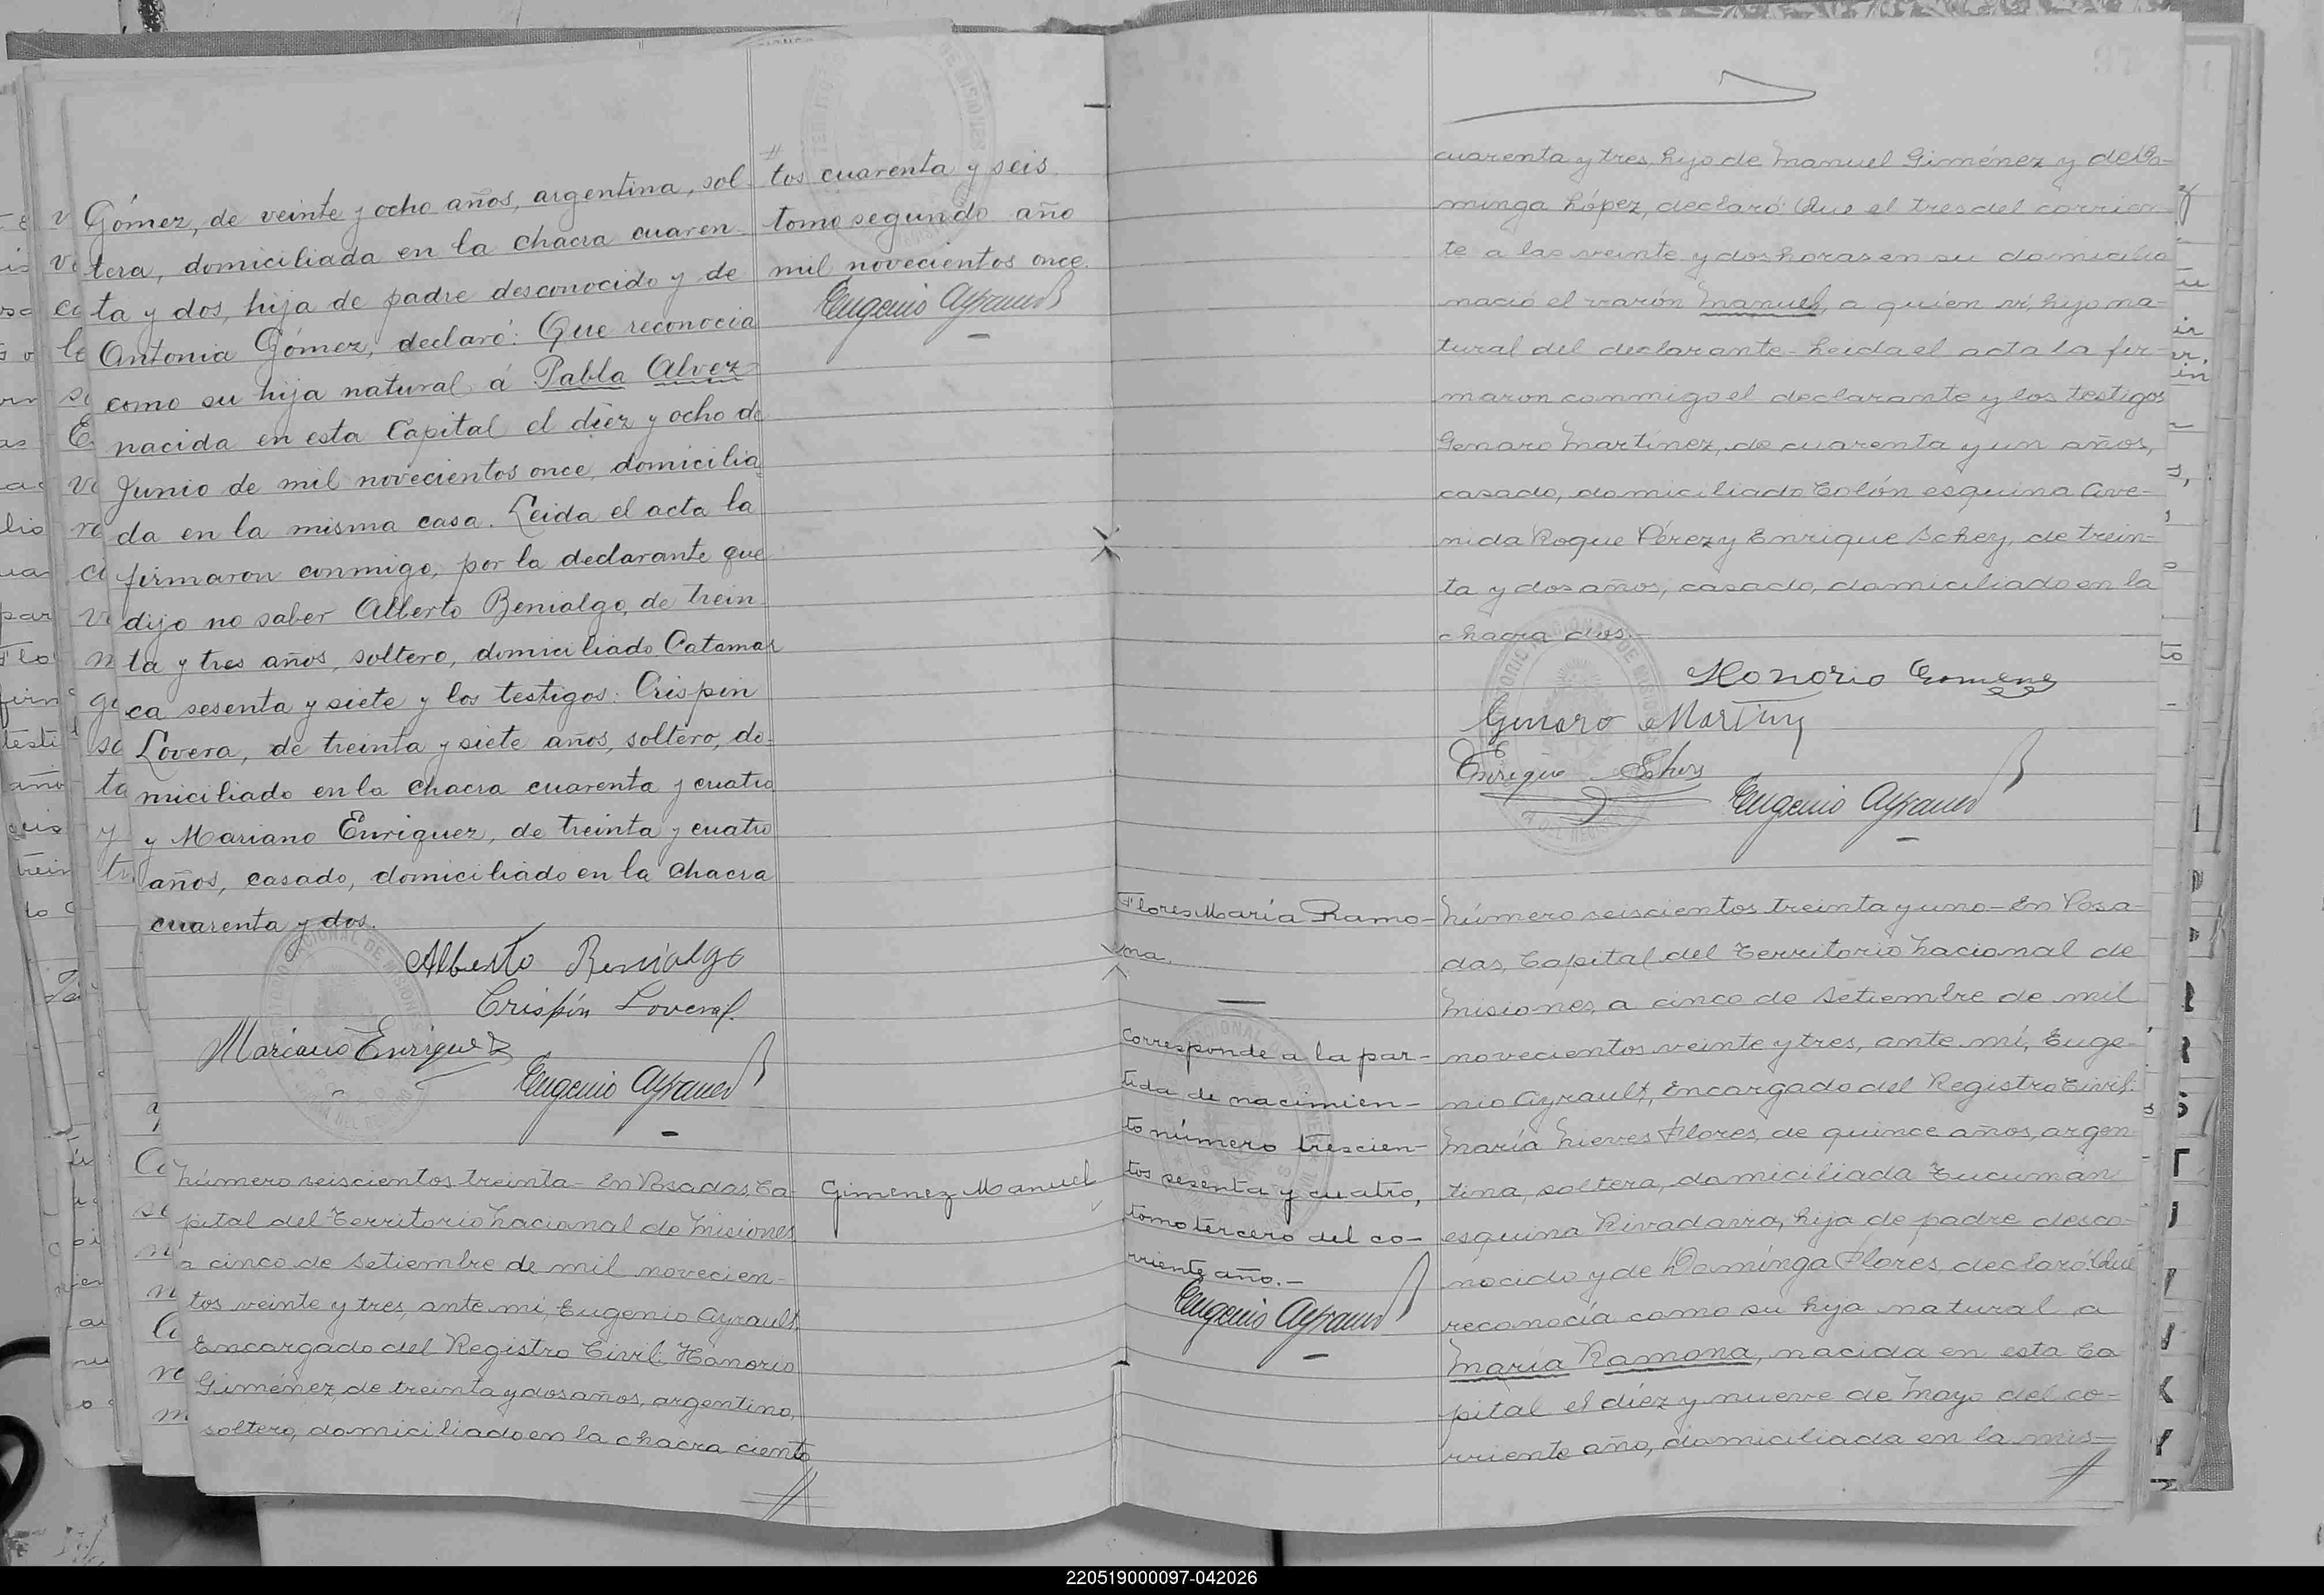 Gómez, de veinte y ocho años, argentina, sol-
tera, domiciliada en la chacra cuaren-
ta y dos, hija de padre desconocido y de
Antonia Gómez, declaró: Que reconocia
como su hija natural á Pabla Alvez
nacida en esta Capital el diez y ocho de
Junio de mil novecientos once, domicilia-
da en la misma casa. Leida el acta la
firmaron conmigo, por la declarante que
dijo no saber Alberto Benialgo, de trein-
ta y tres años, soltero, domiciliado Catamar
ca sesenta y siete y los testigos: Crispin
Lovera, de treinta y siete años, soltero, do-
miciliado en la chacra cuarenta y cuatro
y Mariano Enriquez, de treinta y cuatro
años, casado, domiciliado en la chacra
cuarenta y dos.
Alberto Benialgo
Crispín Lovera
Mariano Enriquez
Eugenio Ayrault
Número seiscientos treinta- En Posadas, Ca-
pital del Territorio Nacional de Misiones
a cinco de Setiembre de mil novecien-
tos veinte y tres, ante mi, Eugenio Ayrault,
Encargado del Registro Civil: Honorio
Giménez, de treinta y dos años, argentino,
soltero, domiciliado en la chacra ciento
tos cuarenta y seis
tomo segundo año
mil novecientos once.
Eugenio Ayrault
Gimenez Manuel
cuarenta y tres, hijo de Manuel Giménez y de Do-
minga López, declaró: Que el tres del corrien-
te a las veinte y dos horas en su domicilio
nació el varón Manuel, a quien ví, hijo na-
tural del declarante- Leida el acta la fir-
maron conmigo el declarante y los testigos
Genaro Martínez, de cuarenta y un años,
casado, domiciliado Colón esquina Ave-
nida Roque Pérez y Enrique Schey, de trein-
ta y dos años, casado, domiciliado en la
chacra dos.-
Honorio Gimenez
Genaro Martinez
Enrique Schey
Eugenio Ayrault
Flores María Ramo-
na.
Corresponde a la par-
tida de nacimien-
to número trescien-
tos sesenta y cuatro,
tomo tercero del co-
rriente año.-
Eugenio Ayrault
Número seiscientos treinta y uno- En Posa-
das, Capital del Territorio Nacional de
Misiones, a cinco de Setiembre de mil
novecientos veinte y tres, ante mí, Euge-
nio Ayrault, Encargado del Registro Civil:
María Nieves Flores, de quince años, argen-
tina, soltera, domiciliada Tucumán
esquina Rivadavia, hija de padre desco-
nocido y de Domínga Flores, declaró: Que
reconocía como su hija natural a
María Ramona, nacida en esta Ca-
pital el diez y nueve de Mayo del co-
rriente año, domiciliada en la mis-
220519000097-042026